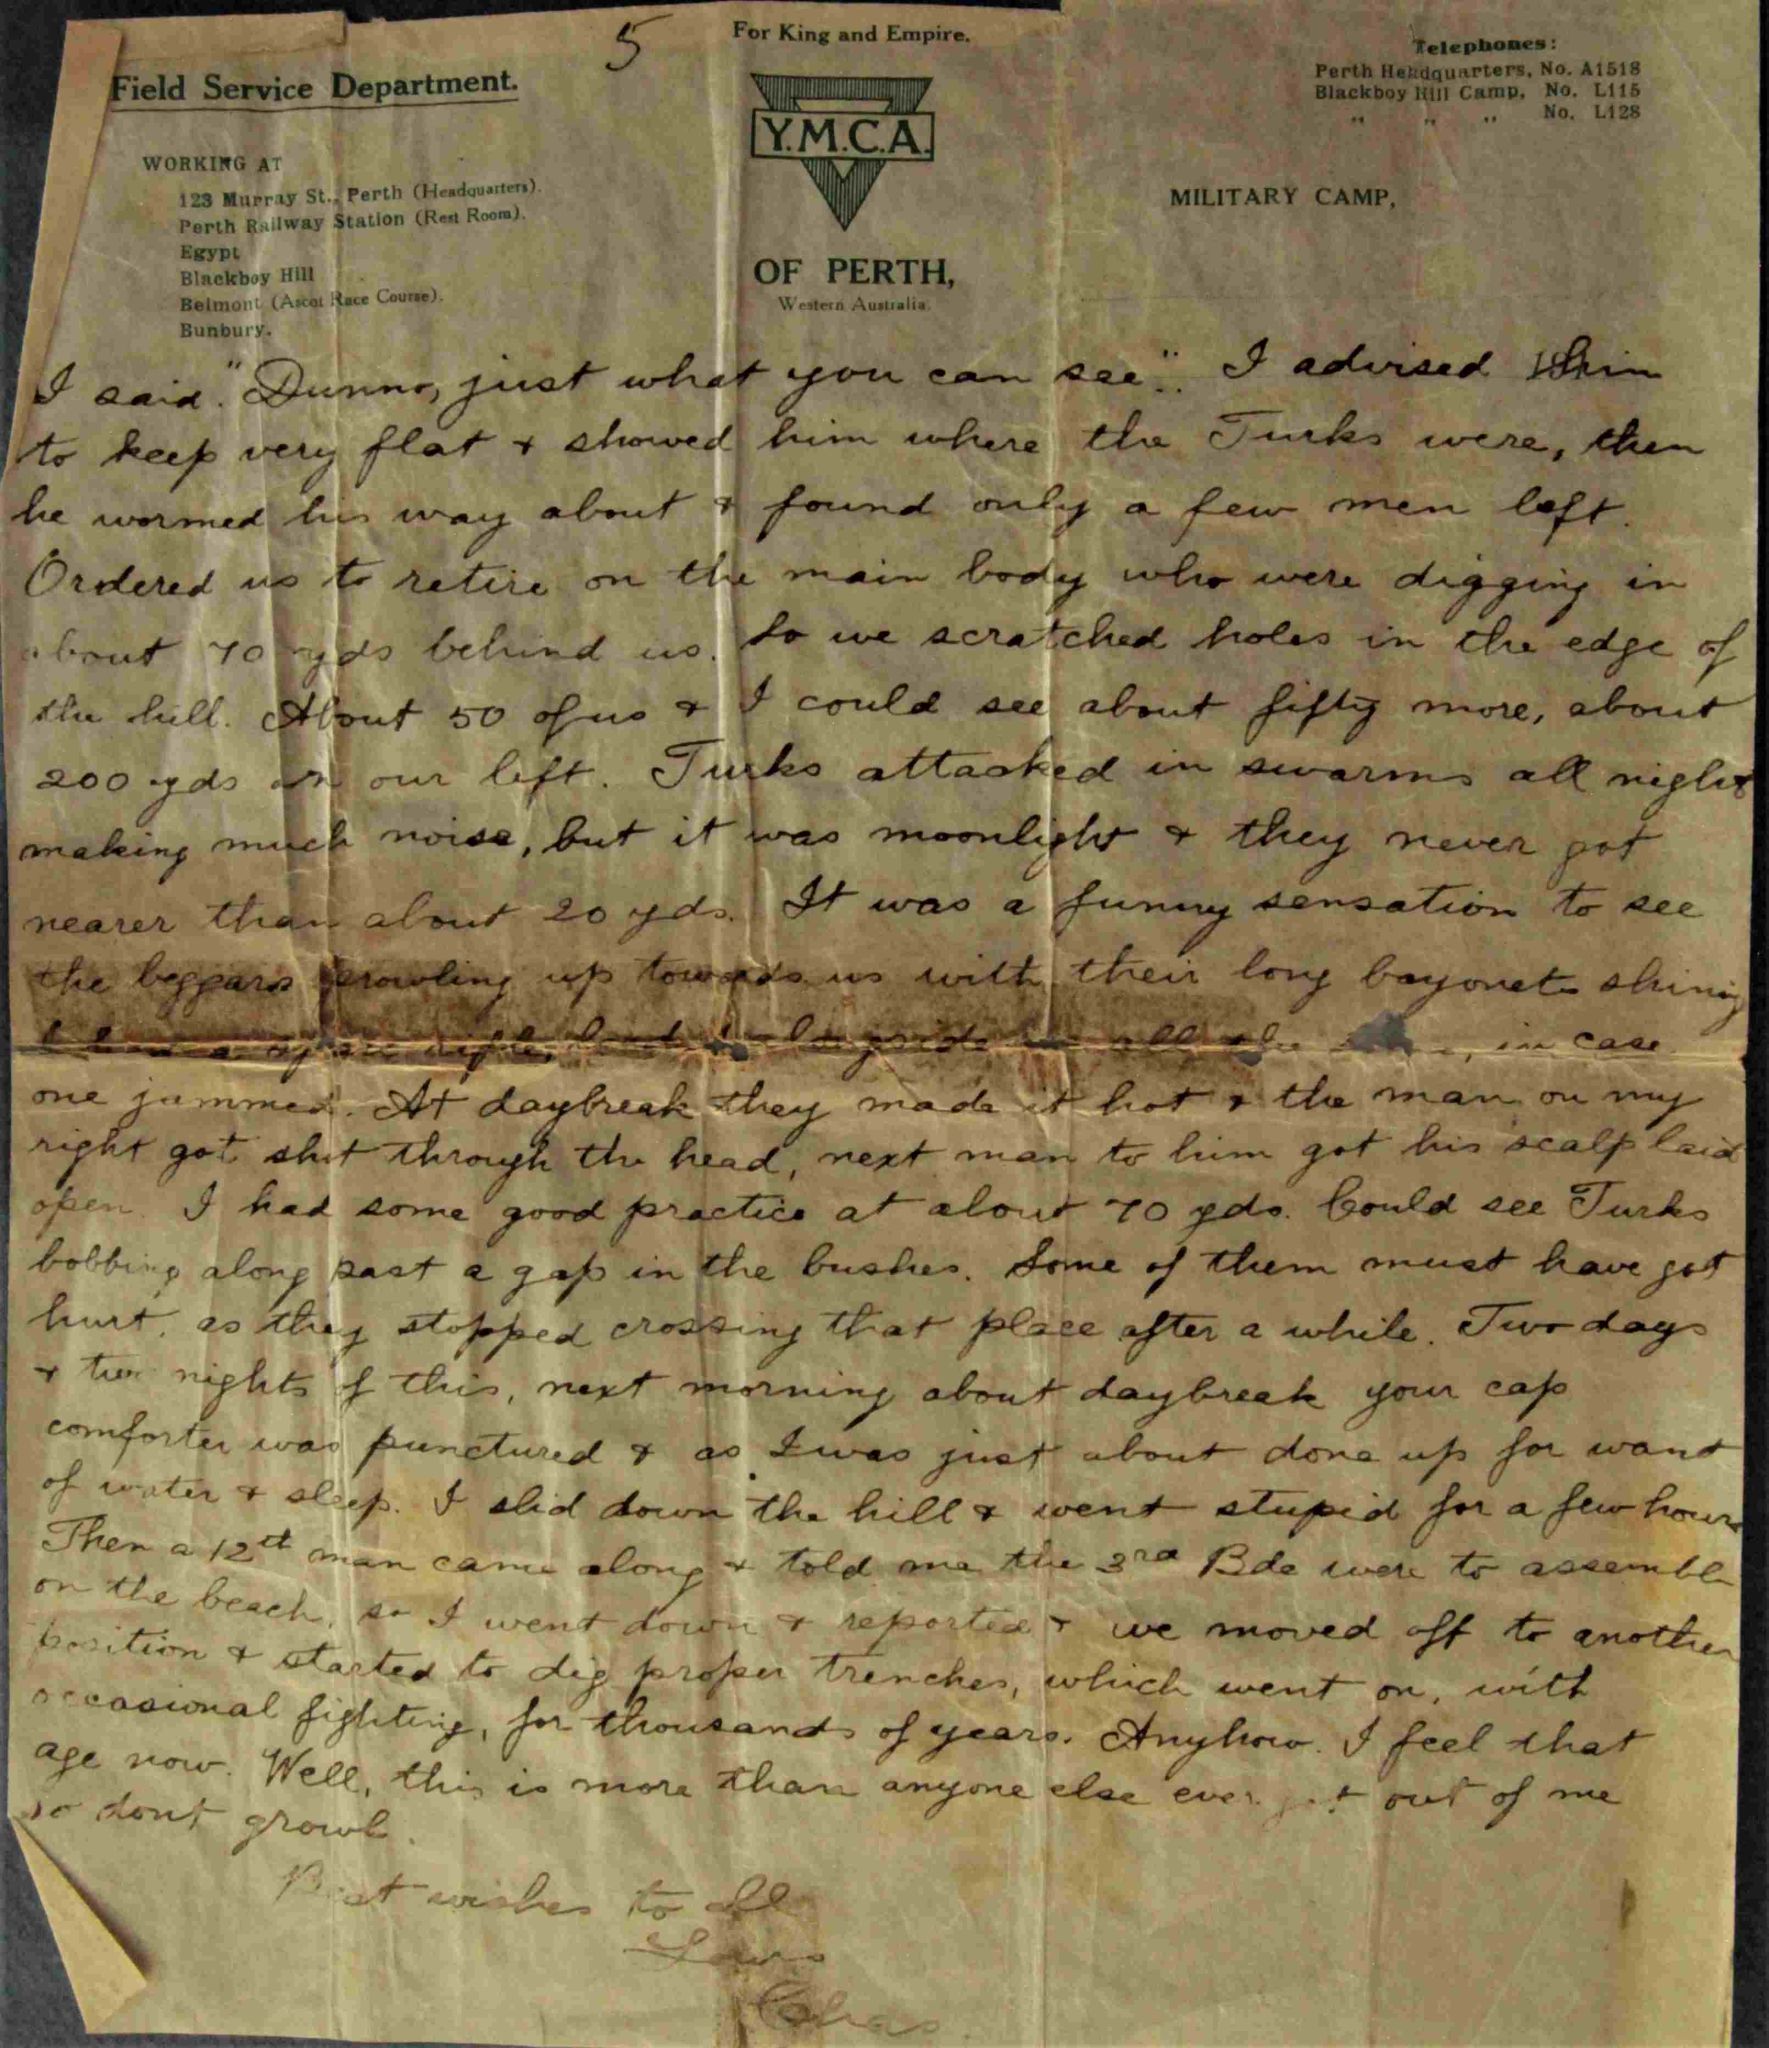 5
For King and Empire.
Field Service Department.
Telephones:
Perth Headquarters, No. A1518
Blackboy Hill Camp, No. L115
" " " No. L128
Y.M.C.A.
WORKING AT
123 Murray St., Perth (Headquarters).
Perth Railway Station (Rest Room).
Egypt
Blackboy Hill
Belmont (Ascot Race Course).
Bunbury.
MILITARY CAMP,
OF PERTH,
Western Australia.
I said. "Dunno, just what you can see". I advised him
to keep very flat & showed him where the Turks were, then
he wormed his way about & found only a few men left.
Ordered us to retire on the main body who were digging in
about 70 yds behind us. So we scratched holes in the edge of
the hill. About 50 of us & I could see about fifty more, about
200 yds on our left. Turks attacked in swarms all night
making much noise, but it was moonlight & they never got
nearer than about 20 yds. It was a funny sensation to see
the beggars prowling up towards us with their long bayonets shining
rifle, all the in case
one jammed. At daybreak they made it hot & the man on my
right got shot through the head, next man to him got his scalp laid
open. I had some good practice at about 70 yds. Could see Turks
bobbing along past a gap in the bushes. Some of them must have got
hurt, as they stopped crossing that place after a while. Two days
& two nights of this, next morning about daybreak your cap
comforter was punctured & as I was just about done up for want
of water & sleep. I slid down the hill & went stupid for a few hours
Then a 12th man came along & told me the 3rd Bde were to assemble
on the beach, so I went down & reported & we moved off to another
position & started to dig proper trenches, which went on, with
occasional fighting, for thousands of years. Anyhow. I feel that
age now. Well, this is more than anyone else ever got out of me
so dont growl.
Best wishes to all
Love
Chas.